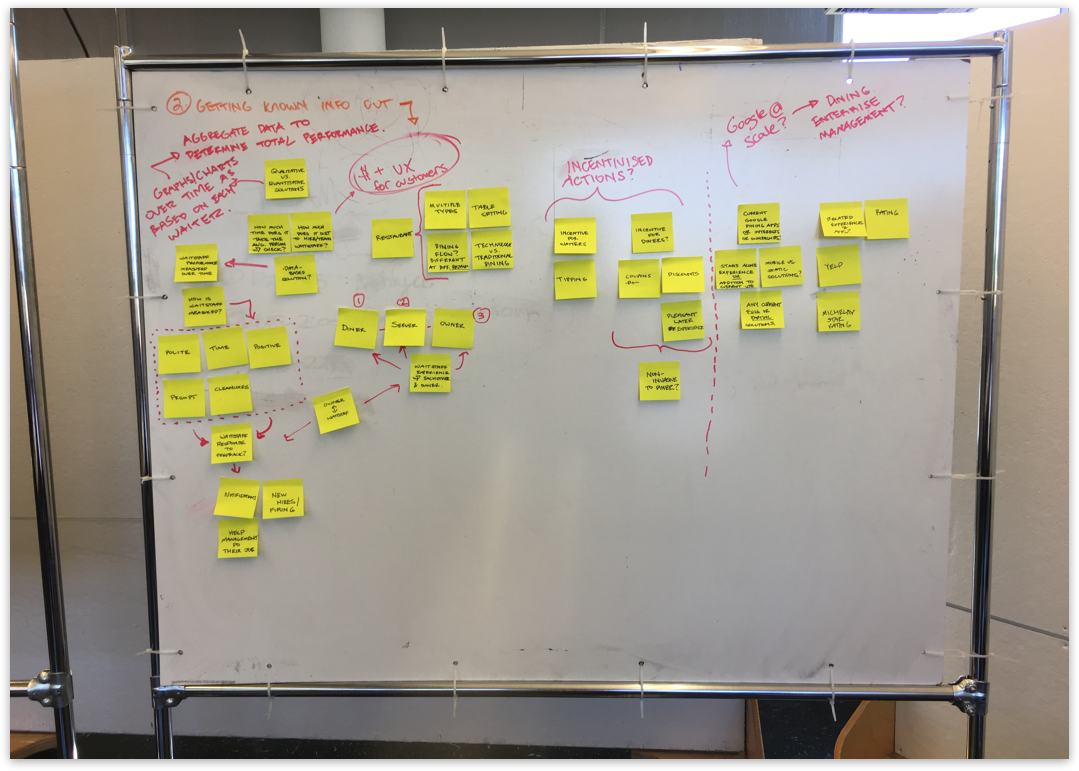 ② GETTING KNOWN INFO OUT
AGGREGATE DATA TO
DETERMINE TOTAL PERFORMANCE.
GRAPHS/CHARTS
OVER TIME AS
BASED ON EACH
WAITER.
$ + UX
for customers
QUALITATIVE
VS.
QUANTITATIVE
SOLUTIONS
HOW MUCH
TIME DOES IT
TAKE THE
CHECK?
HOW MUCH
DOES IT COST
TO HIRE/TRAIN
WAITSTAFF?
WAITSTAFF
PERFORMANCE
MEASURED
OVER TIME
DATA-
BASED
SOLUTION?
HOW IS
WAITSTAFF
MEASURED?
POLITE
TIME
POSITIVE
PROMPT
CLEANLINESS
WAITSTAFF
RESPONSE
TO
FEEDBACK?
NOTIFICATIONS
NEW
HIRES/
FIRING
HELP
MANAGEMENT
DO
THEIR JOB
RESTAURANT
MULTIPLE
TYPES
TABLE
SETTING
DINING
FLOW?
DIFFERENT
AT
TECHNOLOGY
VS.
TRADITIONAL
DINING
①
②
③
DINER
SERVER
OWNER
WAITSTAFF
EXPERIENCE
& DINER.
OWNER
WAITSTAFF
INCENTIVISED
ACTIONS?
INCENTIVE
FOR
WAITERS
TIPPING
INCENTIVE
FOR
DINERS?
COUPONS
DISCOUNTS
PLEASANT
LATER
EXPERIENCE
NON-
INVASIVE
TO DINER?
Google @
scale?
DINING
ENTERPRISE
MANAGEMENT?
CURRENT
GOOGLE
DINING APPS
OR INTERESTS
IN COMPANIES
STAND ALONE
EXPERIENCE
OR
ADDITION TO
CURRENT
MOBILE VS.
STATIC
SOLUTIONS?
ANY CURRENT
FULL OR
PARTIAL
SOLUTIONS?
RELATED
EXPERIENCE
APPS?
RATING
YELP
MICHELIN
STAR
RATING